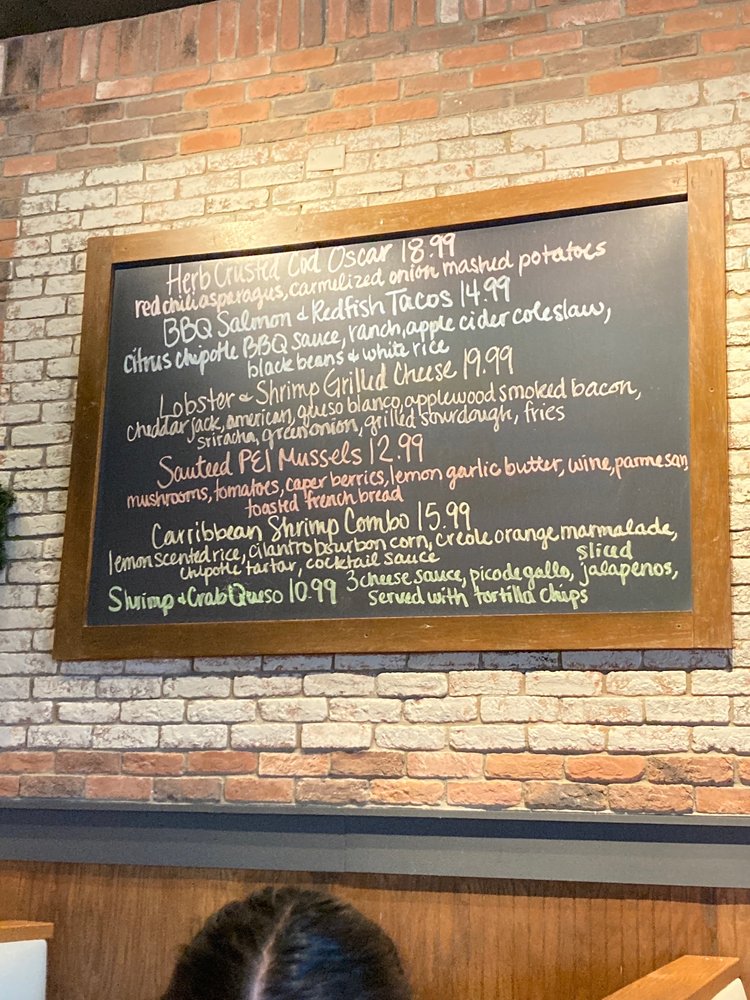 Herb Crusted Cod Oscar 18.99
red chili asparagus, carmelized onion mashed potatoes
BBQ Salmon & Redfish Tacos 14.99
citrus chipotle BBQ sauce, ranch, apple cider coleslaw,
black beans & white rice
Lobster & Shrimp Grilled Cheese 19.99
cheddar jack, american, queso blanco, applewood smoked bacon,
sriracha, green onion, grilled sourdough, fries
Sauteed PEI Mussels 12.99
mushrooms, tomatoes, caper berries, lemon garlic butter, wine, parmesan
toasted french bread
Carribbean Shrimp Combo 15.99
lemon scented rice, cilantro bourbon corn, creole orange marmalade,
chipotle tartar, cocktail sauce
Shrimp & Crab Queso 10.99 3 cheese sauce, pico de gallo, sliced jalapenos,
served with tortilla chips